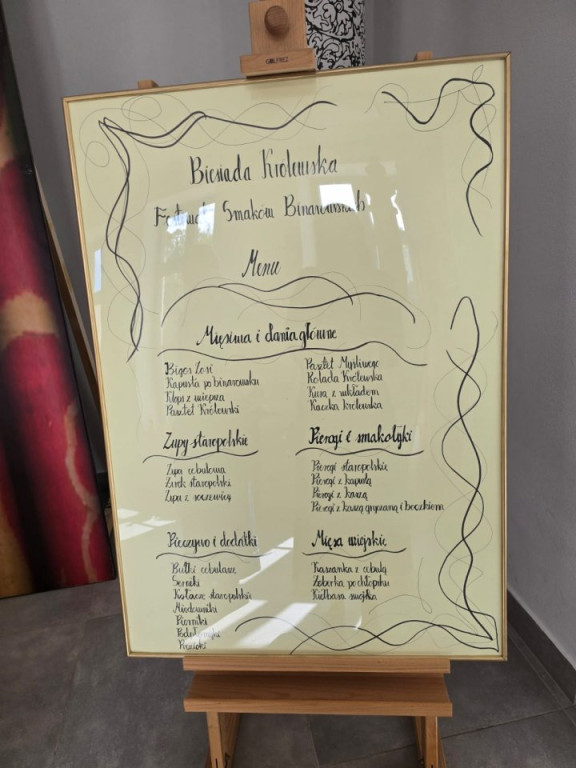 Biesiada Królewska
Festiwal Smaków
Menu
Mięsiwa i dania główne
Bigos Zosi
Kapusta po binarowsku
Klops z wieprza
Pasztet Królewski
Pasztet Myśliwego
Rolada Królewska
Kura z wkładem
Kaczka królewska
Zupy staropolskie
Zupa cebulowa
Żurek staropolski
Zupa z soczewicy
Pierogi i smakołyki
Pierogi staropolskie
Pierogi z kapustą
Pierogi z kaszą
Pierogi z kaszą gryczaną i boczkiem
Pieczywo i dodatki
Bułki cebulacze
Serniki
Kołacze staropolskie
Miodowniki
Pierniki
Mięsa wiejskie
Kaszanka z cebulą
Żeberka po chłopsku
Kiełbasa swojska